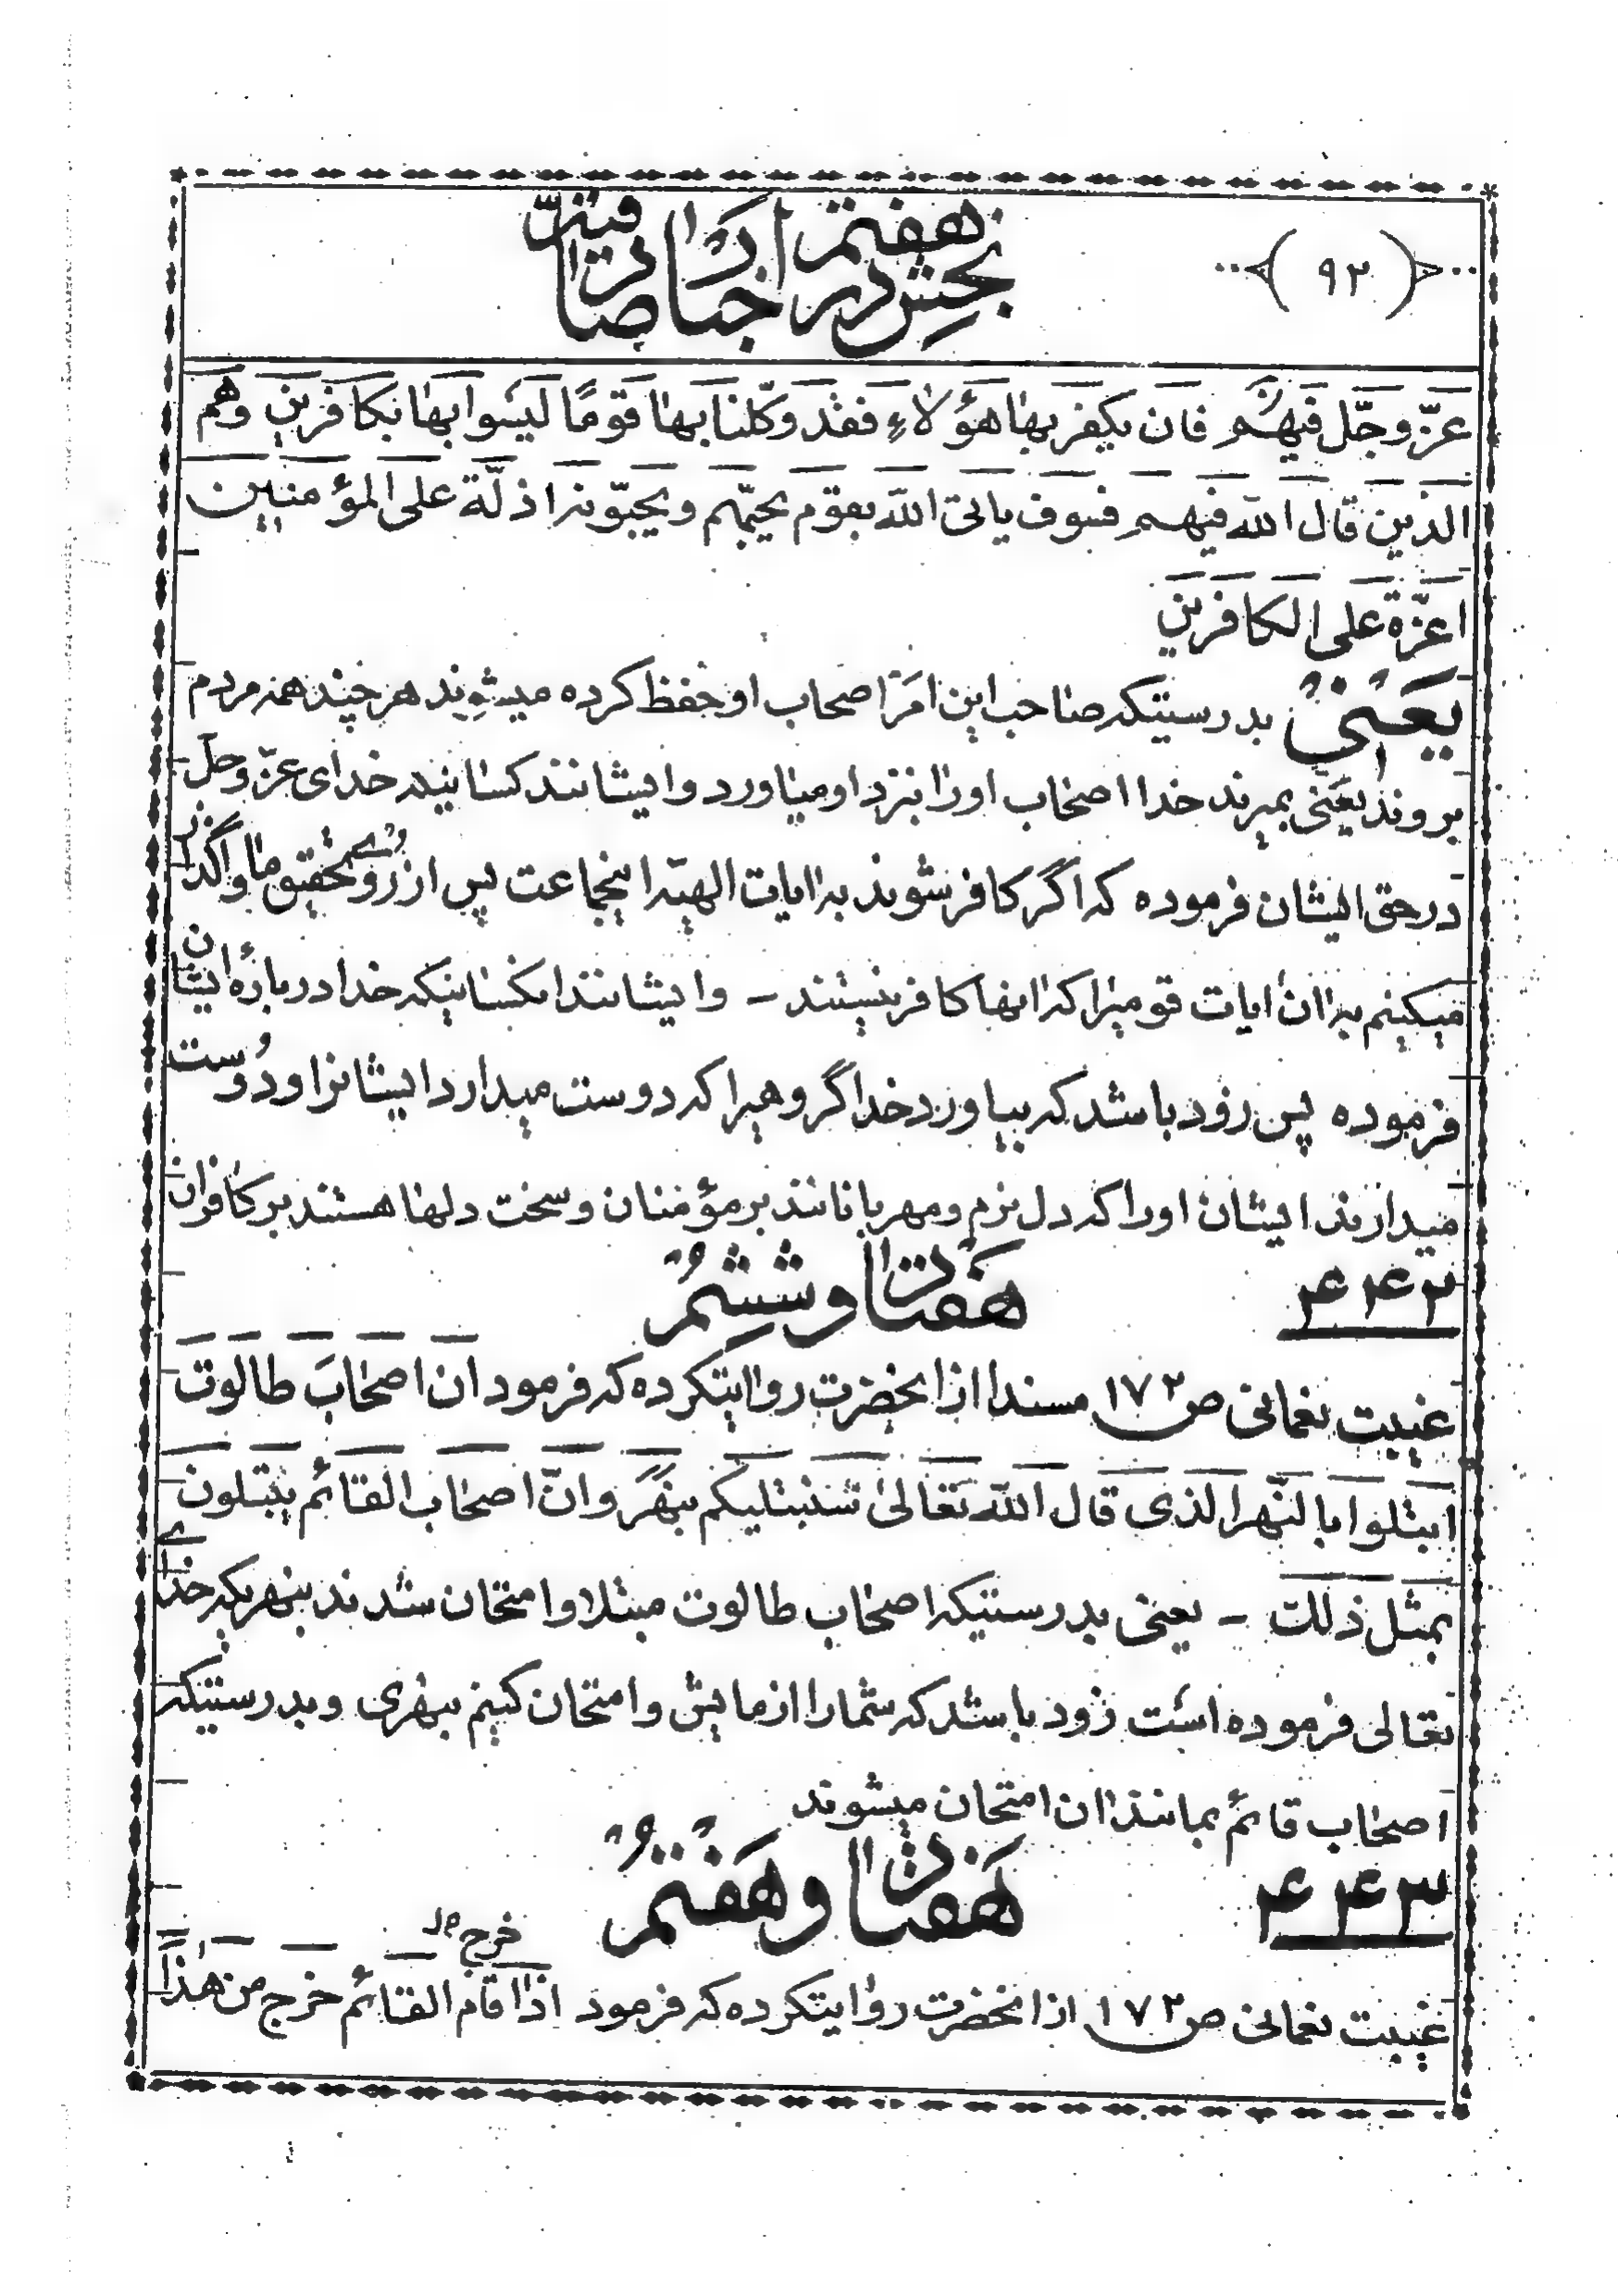 (۹۲)
بخش هفتم در اخبار صادقیّه
عزّ و جّل فیهم فان یکفر بها هؤلاء فقد وکّلنا بها قومًا لیسوا بها بکافرین وهم
الذین قال الله فیهم فسوف یاتی الله بقوم یحبّهم ویحبّونه اذلّة علی المؤمنین
اعزّة علی الکافرین
یعنی بدرستیکه صاحب این امر را اصحاب او حفظ کرده میشوند هر چند همه مردم
بروند یعنی بمیرند خدا اصحاب او را بنزد او میاورد و ایشانند کسانیکه خدای عزّ و جلّ
در حق ایشان فرموده که اگر کافر شوند به ایات الهیّه اینجماعت پس از روی تحقیق ما واگذار
میکنیم به ان ایات قومیرا که به انها کافر نیستند - و ایشانند انکسانیکه خدا در باره ایشان
فرموده پس زود باشد که بیاورد خدا گروهیرا که دوست میدارد ایشانرا و دوست
میدارند ایشان او را که دل نرم و مهربانانند بر مؤمنان و سخت دلها هستند بر کافران
۴۴۲ هفتاد و ششم
غیبت نعمانی ص ۱۷۲ مسندا از انحضرت روایتکرده که فرمود ان اصحاب طالوت
ابتلوا بالنّهر الذی قال الله تعالی سنبتلیکم بنهر وانّ اصحاب القائم یبتلون
بمثل ذلک - یعنی بدرستیکه اصحاب طالوت مبتلا و امتحان شدند بنهریکه خدای
تعالی فرموده است زود باشد که شما را ازمایش و امتحان کنیم بنهری و بدرستیکه
اصحاب قائم بمانند ان امتحان میشوند
۴۴۳ هفتاد و هفتم
خرج
غیبت نعمانی ص ۱۷۲ از انحضرت روایتکرده که فرمود اذا قام القائم خرج من هذا